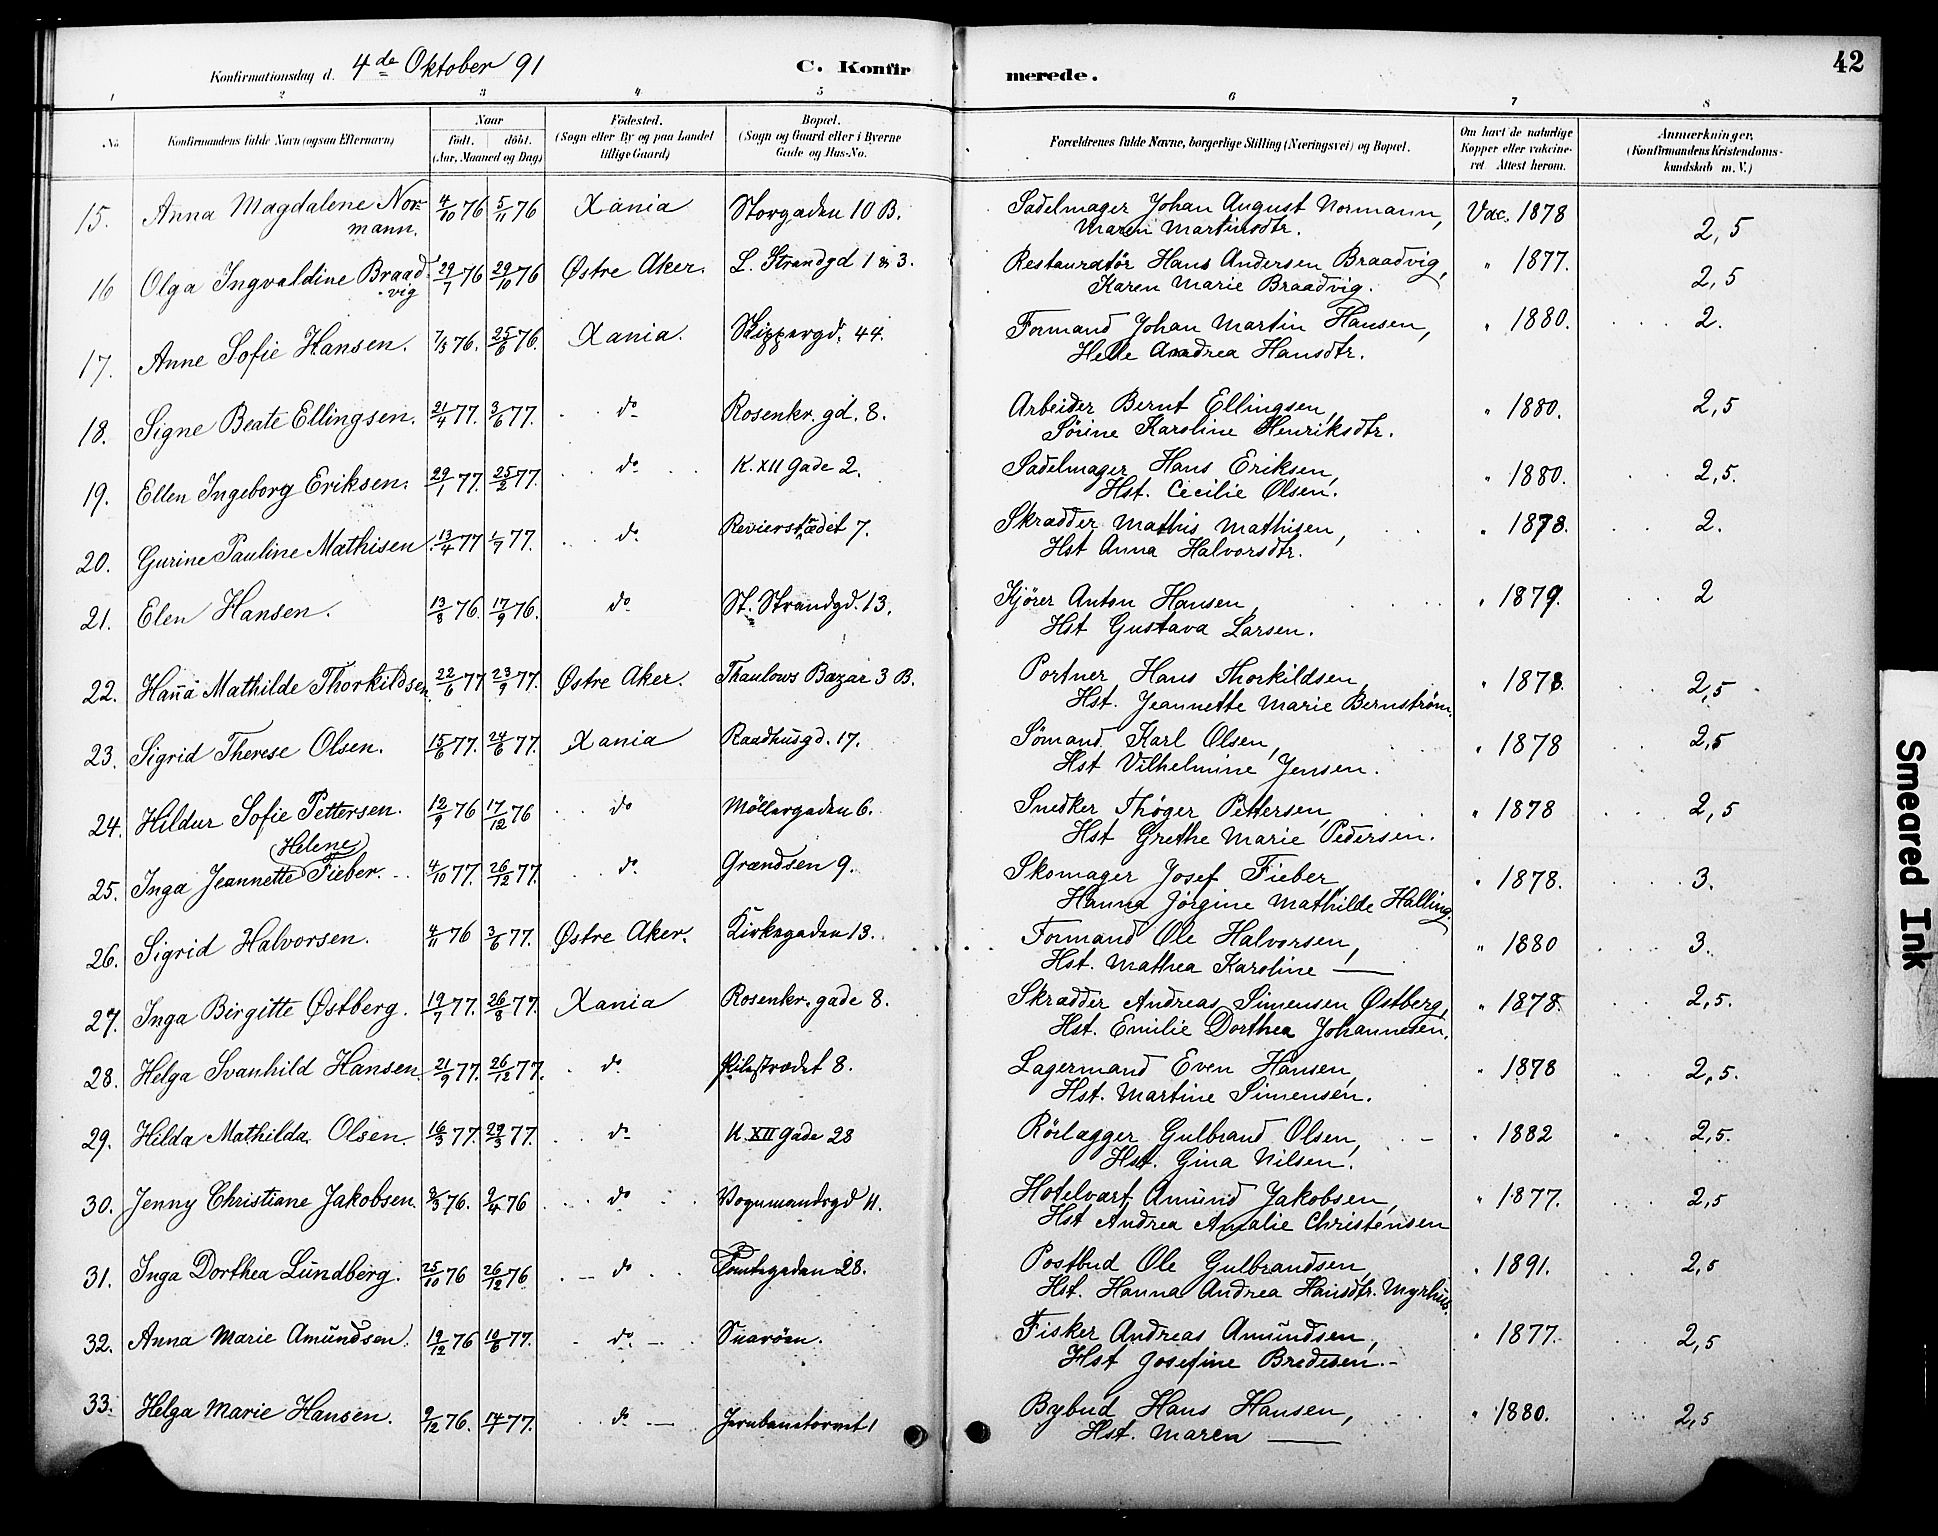 Konfirmationsdag d. 4de Oktober 91 C. Konfirmerede. 42
1 2 3 4 5 6 7 8
No
Konfirmandens fulde Navn (ogsaa Efternavn)
Naar
født. døbt.
(Aar, Maaned og Dag)
Fødested.
(Sogn eller By og paa Landet
tillige Gaard)
Bopæl.
(Sogn og Gaard eller i Byerne
Gade og Hus-No.
Forældrenes fulde Navne, borgerlige Stilling (Næringsvei) og Bopæl.
Om havt de naturlige
Kopper eller vakcine-
ret Attest herom.
Anmærkninger.
(Konfirmandens Kristendoms-
kundskab m. V.)
15. Anna Magdalene Nor- 4/10 76 5/11 76 Xania Storgaden 10 B. Sadelmager Johan August Normann, Vac. 1878 2,5
mann. Maren Martinsdtr.
16 Olga Ingvaldine Braad- 29/7 76 29/10 76 Østre Aker. L. Strandgd 1 & 3. Restauratør Hans Andersen Braadvig, " 1877. 2,5
vig Karen Marie Braadvig.
17. Anne Sofie Hansen. 7/3 76. 25/6 76. Xania. Skippergd. 44. Formand Johan Martin Hansen, " 1880. 2.
Helle Andrea Hansdtr.
18. Signe Beate Ellingsen. 21/4 77. 3/6 77. do Rosenkr. gd. 8. Arbeider Bernt Ellingsen, " 1880. 2,5
Sørine Karoline Henriksdtr.
19. Ellen Ingeborg Eriksen. 29/1 77. 25/2 77. do K. XII Gade 2. Sadelmager Hans Eriksen, " 1880. 2,5.
Hst. Cecilie Olsen.
20. Gurine Pauline Mathisen 13/4 77 1/7 77. do Revierstrædet 7. Skrædder Mathis Mathisen, " 1878. 2.
Hst Anna Halvorsdtr.
21. Elen Hansen. 13/8 76. 17/9 76. do St. Strandgd. 13. Kjører Anton Hansen, " 1879. 2
Hst Gustava Larsen.
22. Hanna Mathilde Thorkildsen. 22/6 77 23/9 77. Østre Aker. Thaulows Bazar 3 B. Portner Hans Thorkildsen, " 1878. 2,5
Hst. Jeannette Marie Bernstrøm.
23. Sigrid Therese Olsen. 15/6 77. 24/6 77. Xania Raadhusgd. 17. Sømand Karl Olsen, " 1878 2,5
Hst Vilhelmine Jensen.
24. Hildur Sofie Pettersen. 12/9 76 17/12 76 do Møllergaden 6. Snedker Thøger Pettersen, " 1878 2,5
Hst Grethe Marie Pedersen.
Helene
25. Inga Jeannette Fieber. 4/10 77. 26/12 77. do Grændsen 9. Skomager Josef Fieber, " 1878. 3.
Hanna Jørgine Mathilde Halling.
26. Sigrid Halvorsen. 4/11 76 3/6 77. Østre Aker. Kirkegaden 13. Formand Ole Halvorsen, " 1880 3.
Hst. Mathea Karoline —
27. Inga Birgitte Østberg. 19/7 77. 26/8 77. Xania Rosenkr. gade 8. Skrædder Andreas Simensen Østberg, " 1878. 2,5.
Hst. Emilie Dorthea Johannesen.
28. Helga Svanhild Hansen. 21/9 77. 26/12 77. do Pilestrædet 8. Lagermand Even Hansen, " 1878 2,5.
Hst. Martine Simensen.
29. Hilda Mathilda Olsen. 16/3 77. 29/3 77. do K. XII Gade 28 Rørlægger Gulbrand Olsen, " 1882 2,5.
Hst. Gina Nilsen.
30. Jenny Christiane Jakobsen. 3/3 76. 9/4 76 do Vognmandsgd 11. Hotelvært Amund Jakobsen, " 1877. 2,5
Hst Andrea Amalie Christensen
31. Inga Dorthea Lundberg. 25/10 76 26/12 76 do Tomtegaden 28. Postbud Ole Gulbrandsen, " 1891. 2,5
Hst. Hanna Andrea Hansdtr. Myrhus.
32. Anna Marie Amundsen. 19/12 76 10/6 77. do Snarøen. Fisker Andreas Amundsen, " 1877. 2,5
Hst Josefine Bredesen.
33. Helga Marie Hansen. 9/12 76. 1/4 77. do Jernbanetorvet 1 Bybud Hans Hansen, " 1880. 2,5
Hst. Maren —
Smeared Ink